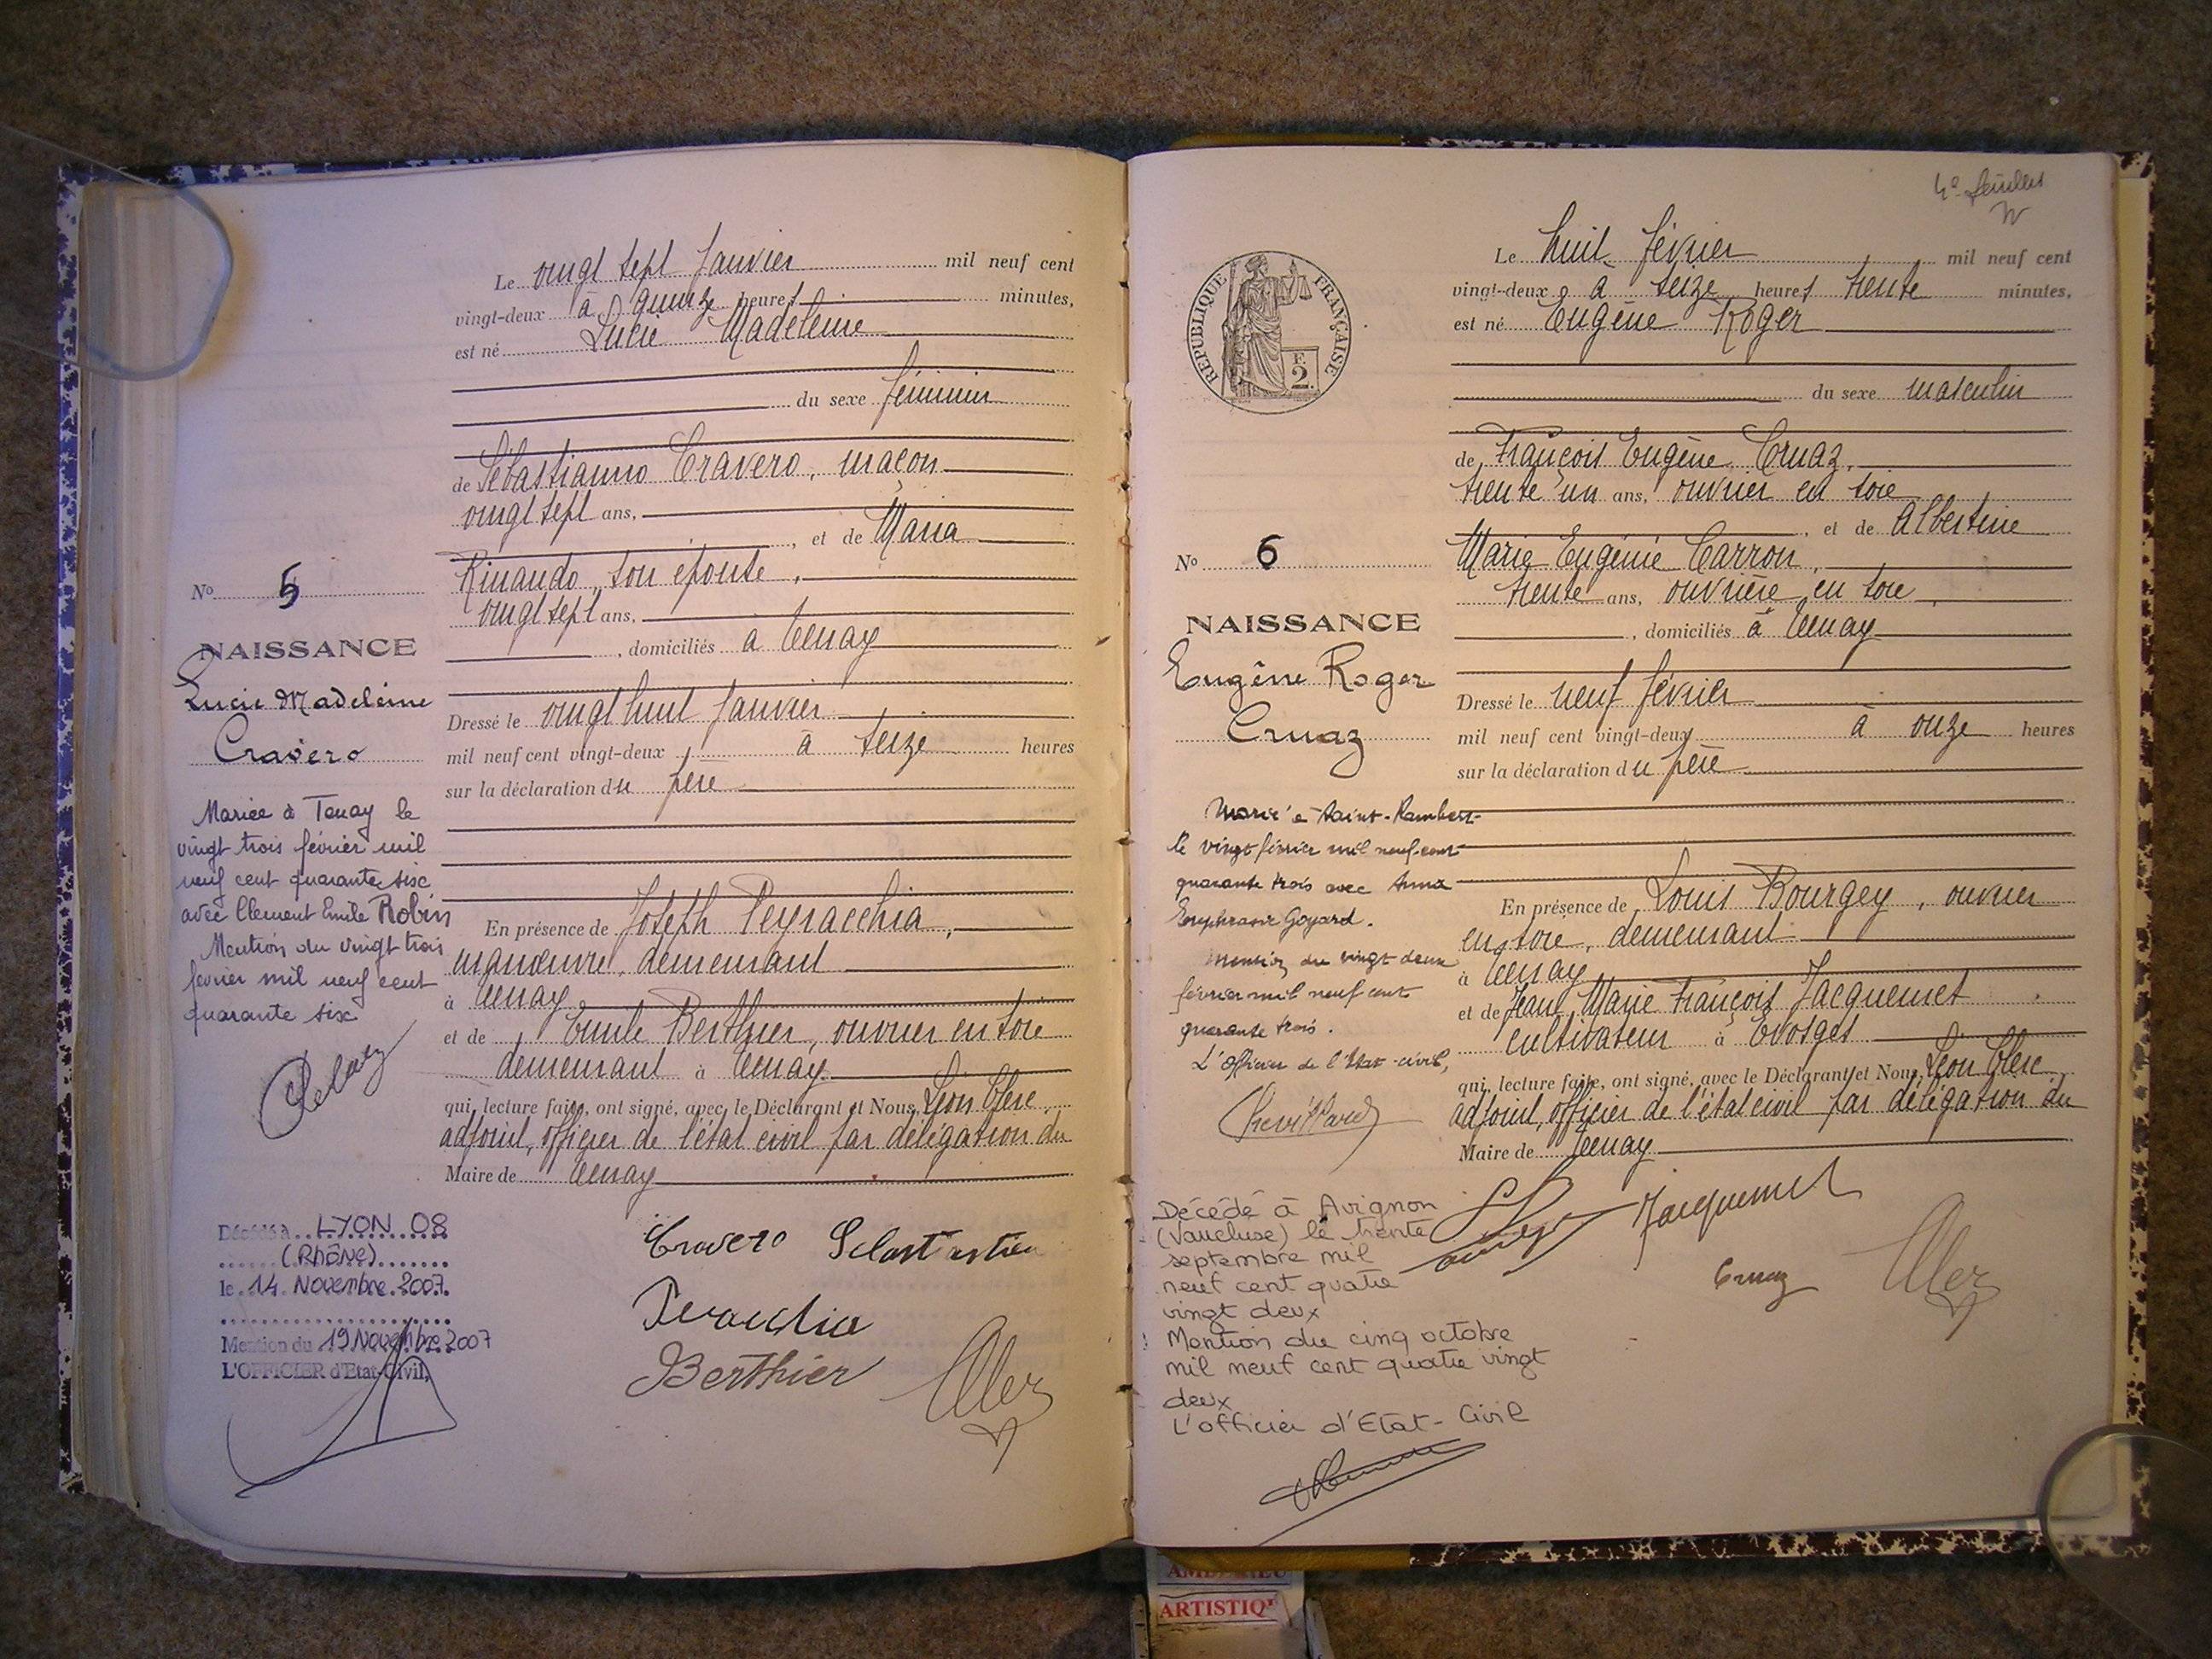 Le vingt sept Janvier mil neuf cent
vingt-deux à quinze heures minutes,
est né Lucie Madeleine
du sexe féminin
de Sébastianno Cravero, maçon
vingt sept ans,
, et de Maria
Rinaudo, son épouse,
vingt sept ans,
, domiciliés à Tenay
Dressé le vingt huit Janvier
mil neuf cent vingt-deux, à seize heures
sur la déclaration du père
En présence de Joseph Peyracchia,
manœuvre, demeurant
à Tenay
et de Emile Berthier, ouvrier en soie
demeurant à Tenay
qui, lecture faite, ont signé, avec le Déclarant et Nous, Léon Clerc,
adjoint, officier de l'état civil par délégation du
Maire de Tenay
Cravero Sebastastien
Berthier
No 5
NAISSANCE
Lucie Madeleine
Cravero
Mariée à Tenay le
vingt trois février mil
neuf cent quarante six
avec Clement Emile Robin
Mention du vingt trois
février mil neuf cent
quarante six
Décédé à LYON 08
(Rhône)
le 14 Novembre 2007
Mention du 19 Novembre 2007
L'OFFICIER d'Etat-Civil,
4e feuillet
REPUBLIQUE FRANÇAISE
F.
2
Le huit février mil neuf cent
vingt-deux à seize heures trente minutes,
est né Eugène Roger
du sexe masculin
de François Eugène Cruaz,
trente un ans, ouvrier en soie
, et de Albertine
Marie Eugénie Carron,
trente ans, ouvrière en soie,
, domiciliés à Tenay
Dressé le neuf février
mil neuf cent vingt-deux à onze heures
sur la déclaration du père
En présence de Louis Bourgey, ouvrier
en soie, demeurant
à Tenay
et de Jean Marie François Jacquemet
cultivateur à Evosges
qui, lecture faite, ont signé, avec le Déclarant et Nous, Léon Clerc,
adjoint, officier de l'état civil par délégation du
Maire de Tenay
Jacquemet
Cruaz
No 6
NAISSANCE
Eugène Roger
Cruaz
Marié à Saint-Rambert
le vingt février mil neuf cent
quarante trois avec Anna
Euphrasie Goyard.
Mention du vingt deux
février mil neuf cent
quarante trois.
L'Officier de l'Etat-civil,
Décédé à Avignon
(Vaucluse) le trente
septembre mil
neuf cent quatre
vingt deux
Mention du cinq octobre
mil neuf cent quatre vingt
deux
L'officier d'Etat-Civil
ARTISTIQ